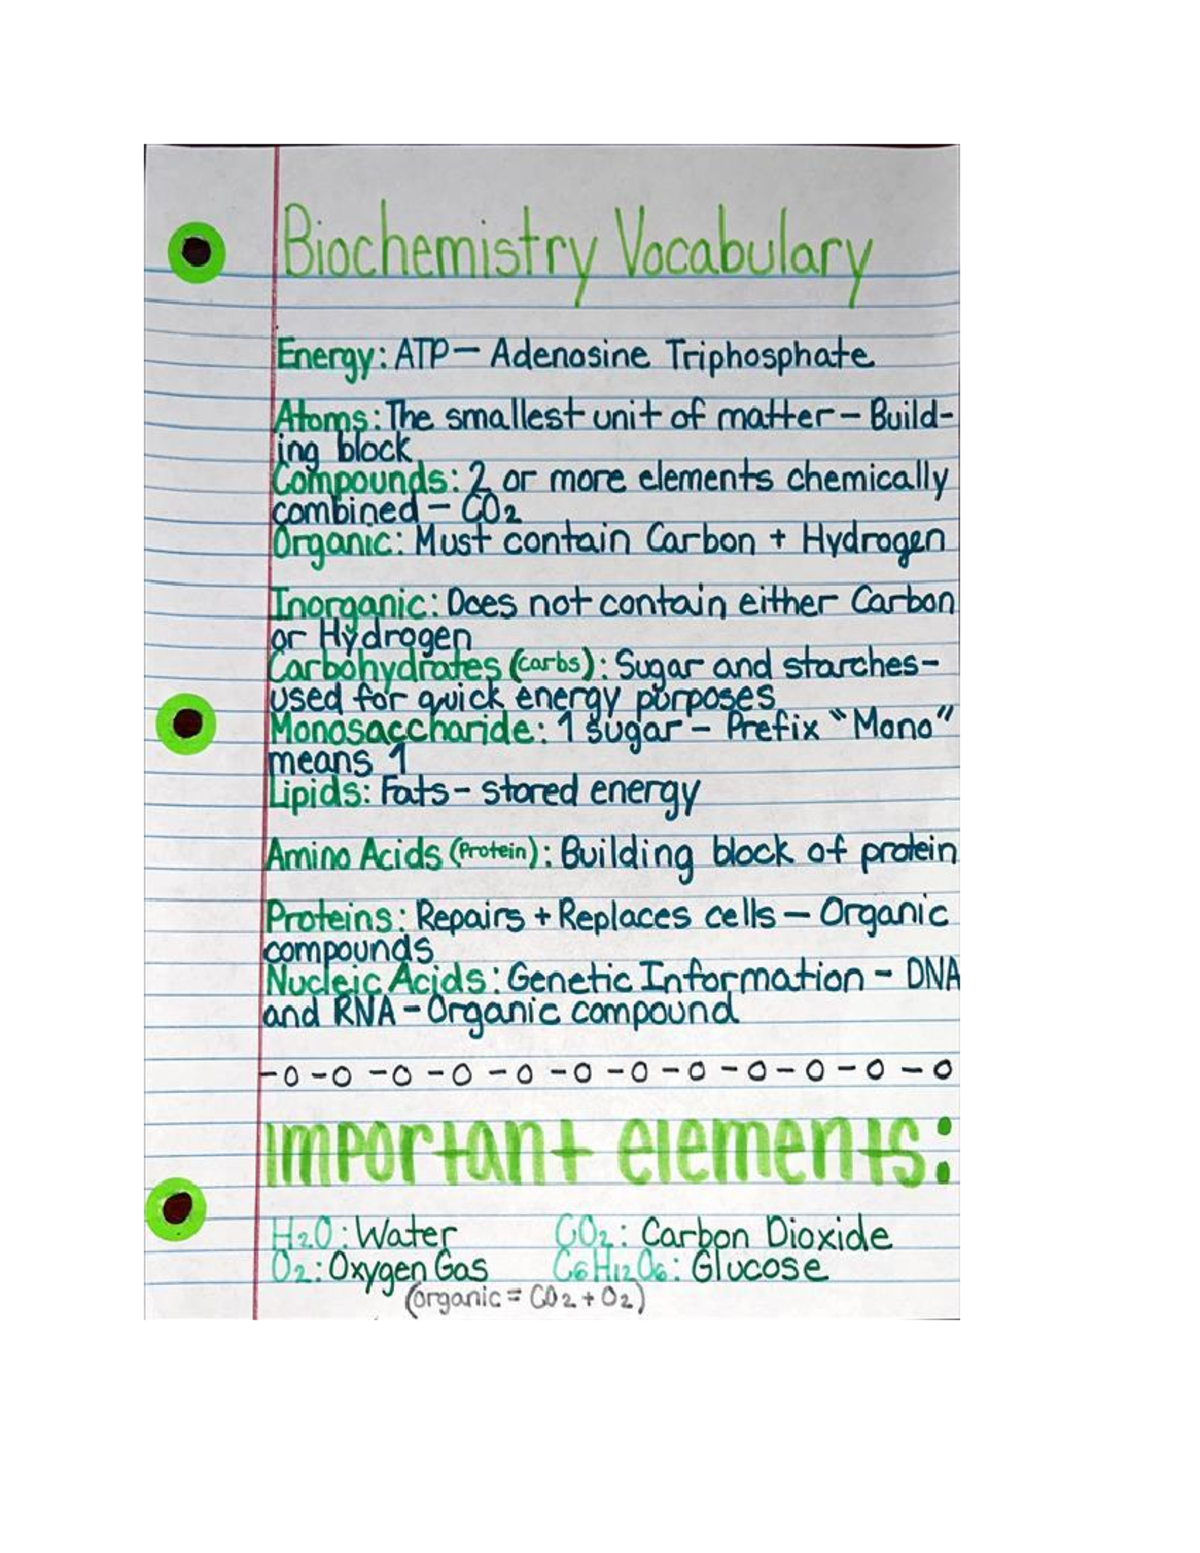 Biochemistry Vocabulary
Energy: ATP- Adenosine Triphosphate
Atoms: The smallest unit of matter - Build-
ing block
Compounds: 2 or more elements chemically
combined - CO₂
Organic: Must contain Carbon + Hydrogen
Inorganic: Does not contain either Carbon
or Hydrogen
Carbohydrates (carbs): Sugar and starches-
used for quick energy purposes
Monosaccharide: 1 sugar - Prefix "Mono"
means 1
Lipids: Fats- stored energy
Amino Acids (Protein): Building block of protein
Proteins: Repairs + Replaces cells - Organic
compounds
Nucleic Acids: Genetic Information - DNA
and RNA - Organic compound
-o-o-o-o-o-o-o-o-o-o-o-o
Important elements:
H₂O: Water CO₂: Carbon Dioxide
O₂: Oxygen Gas C₆H₁₂O₆: Glucose
(organic = CO₂ + O₂)